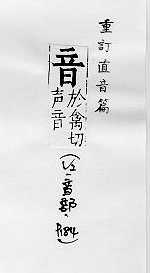 重訂直音篇
音
於禽切
声音
(卷二·音部·P.84)